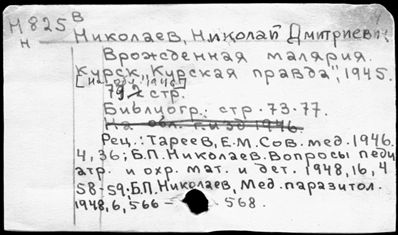 М 825 В
Н
Николаев, Николай Дмитриевич
Врожденная малярия.
Курск, "Курская правда", 1945.
[на обл. 1946]
79 2 стр.
Библиогр. стр. 73-77.
На обл. г. изд. 1946
Рец.: Тареев, Е.М. Сов. мед. 1946.
4, 36; Б.П. Николаев. Вопросы педи
атр. и охр. мат. и дет. 1948, 16, 4
58-59; Б.П. Николаев, Мед. паразитол.
1948, 6, 566 - 568.